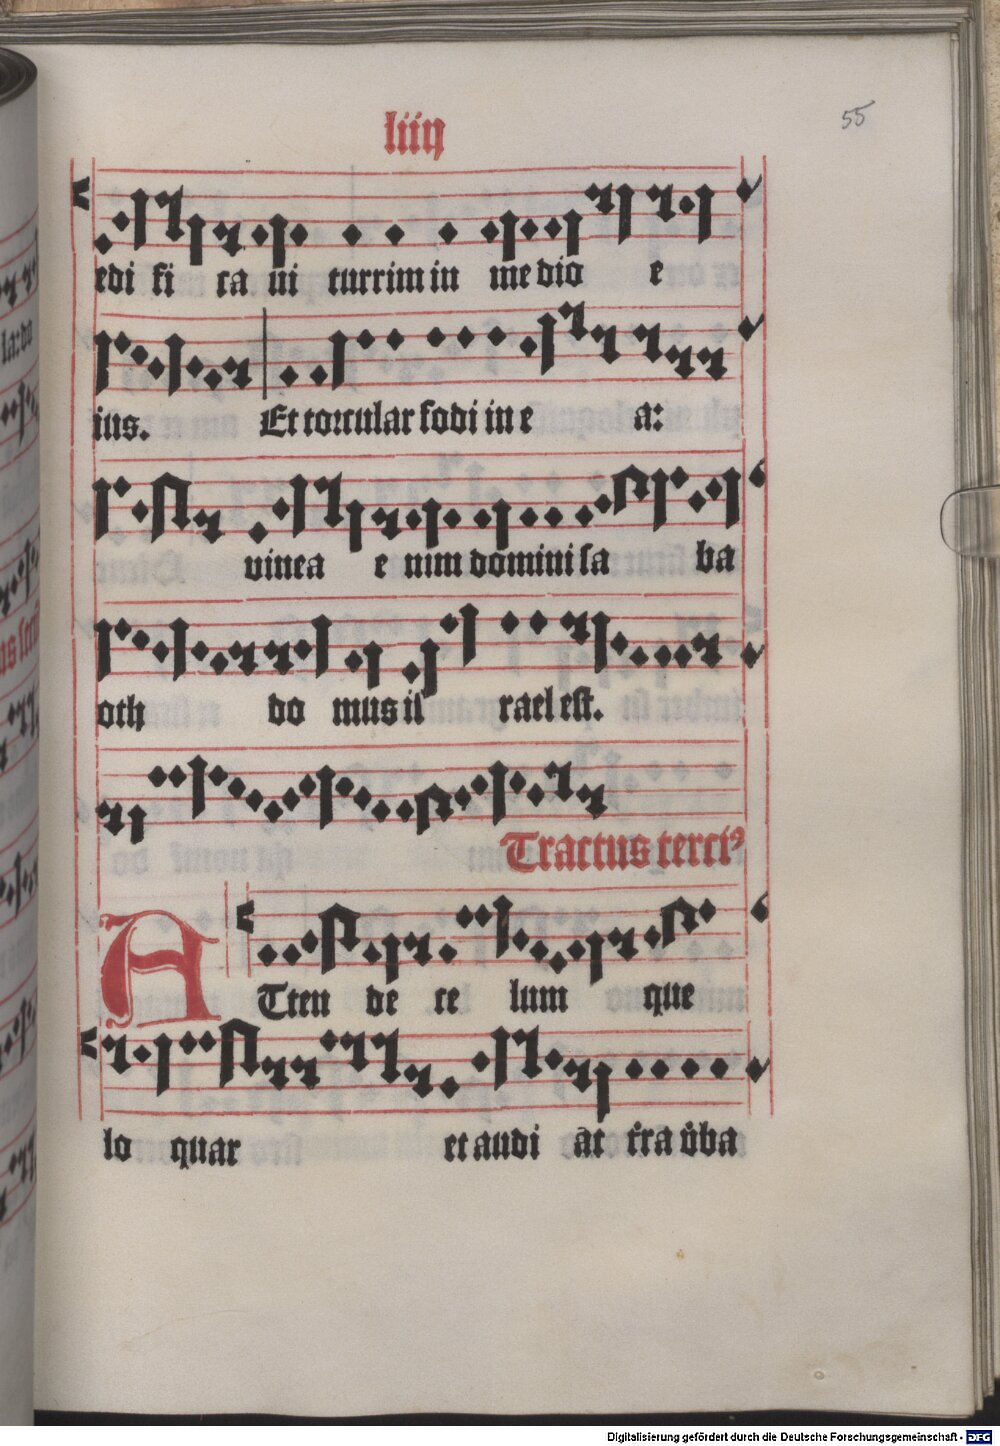 55
liiij
edi fi ca ui turrim in me dio e
ius. Et torcular fodi in e a:
vinea e nim domini sa ba
oth do mus is rael est.
Tractus terciꝰ
ATten de ce lum que
lo quar et audi at t͛ra v͛ba
Digitalisierung gefördert durch die Deutsche Forschungsgemeinschaft - DFG